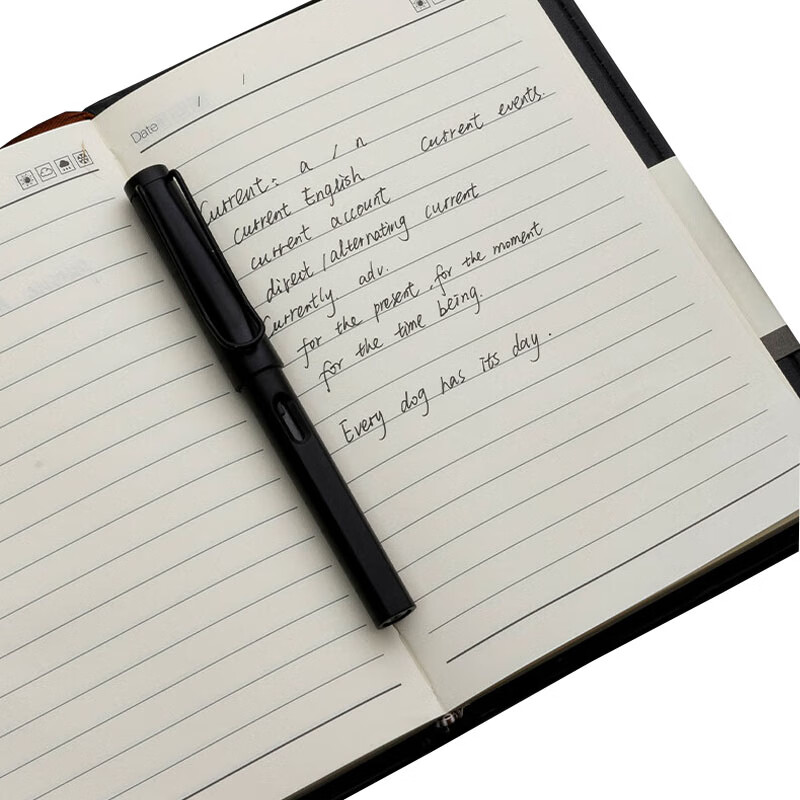 Date / /
Current: a / n current events.
current English
current account
direct / alternating current
Currently adv.
for the present, for the moment
for the time being.
Every dog has its day.